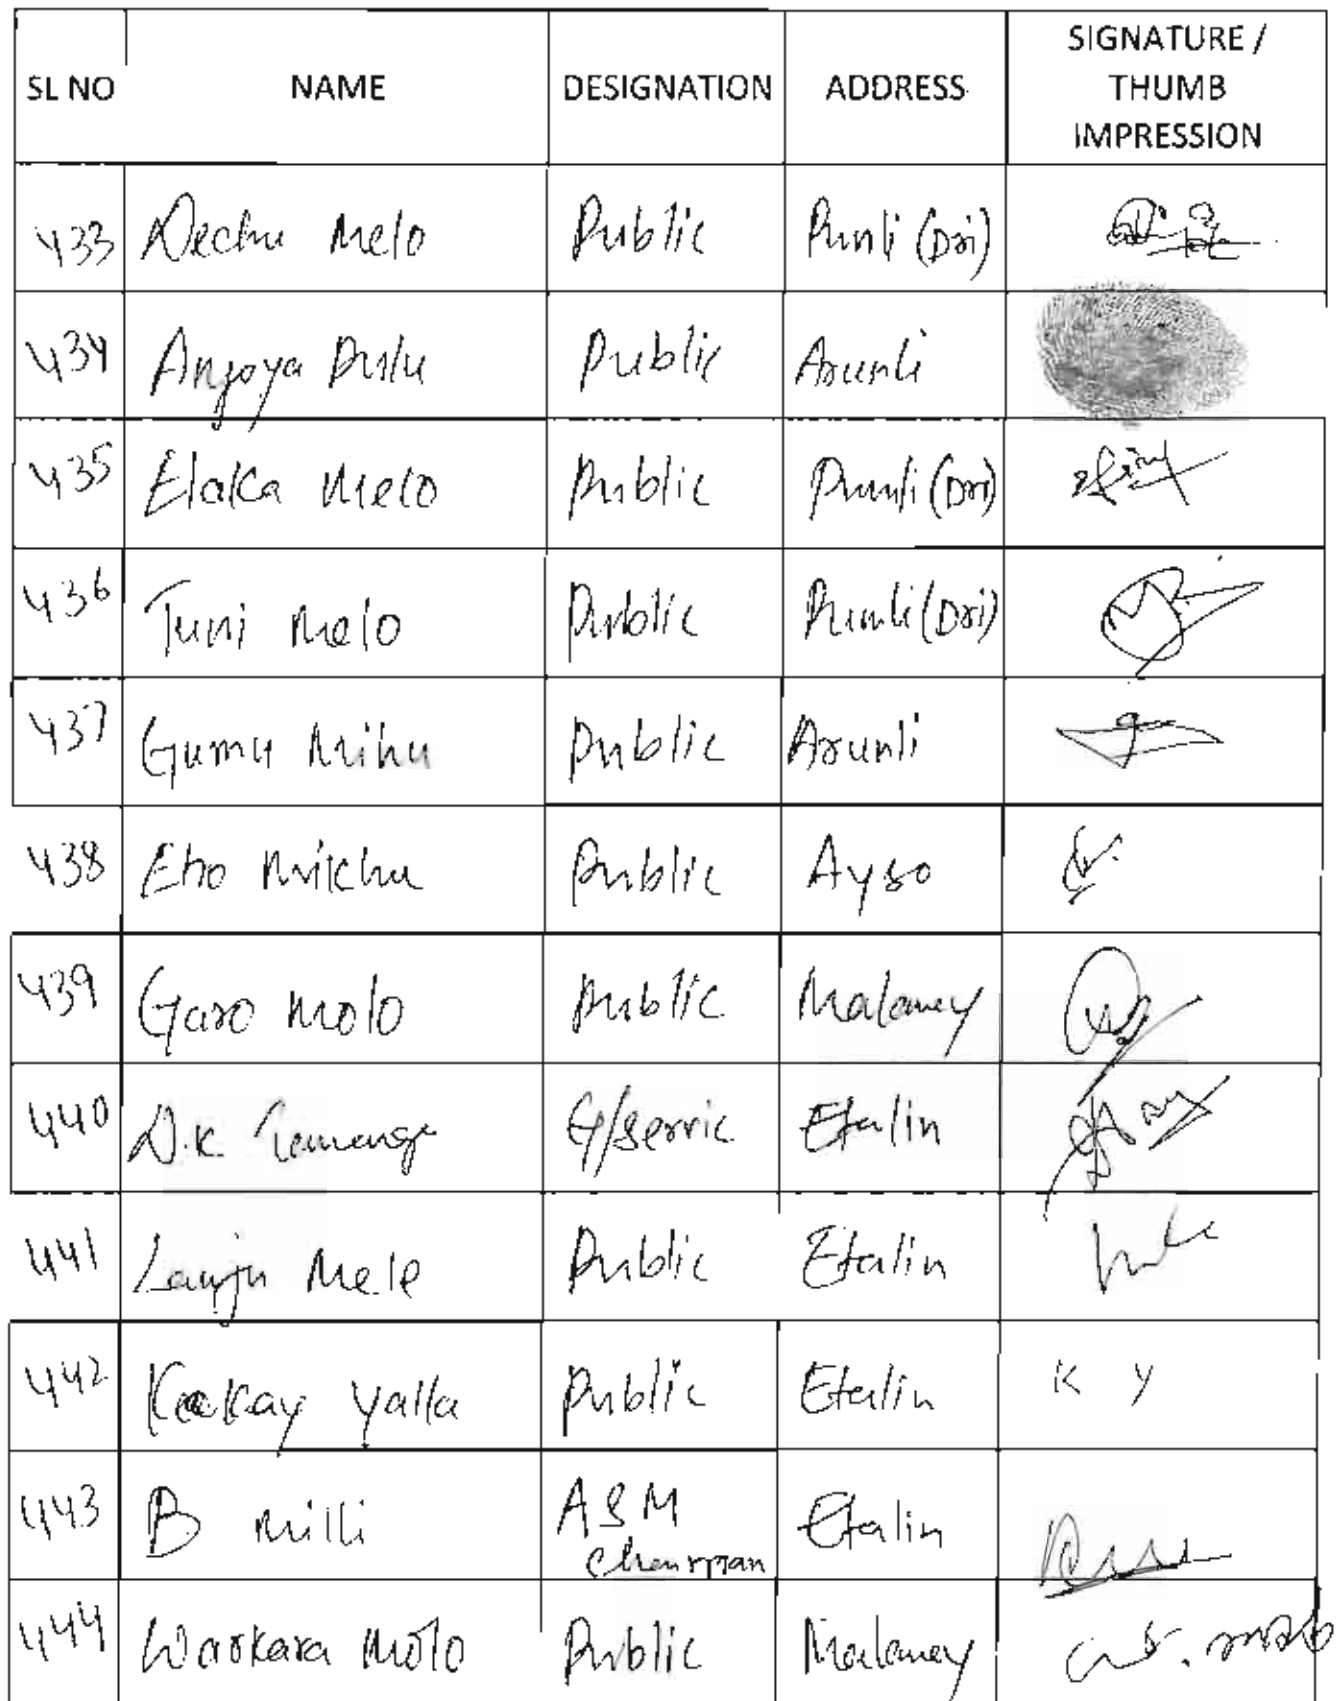 SL NO NAME DESIGNATION ADDRESS SIGNATURE / THUMB IMPRESSION
433 Dechu Melo Public Punli (Dri)
434 Anjoya Pulu Public Arunli
435 Elaka Melo Public Punli (Dri)
436 Tuni Melo Public Punli (Dri)
437 Gumu Mihu Public Arunli
438 Eho Mikhu Public Ayso
439 Garo Molo Public Malaney
440 D.K. Tamang G/servic Etalin
441 Lauju Mele Public Etalin
442 Kaekay Yalla Public Etalin K Y
443 B Milli ASM Chairman Etalin
444 Warkara Molo Public Malaney